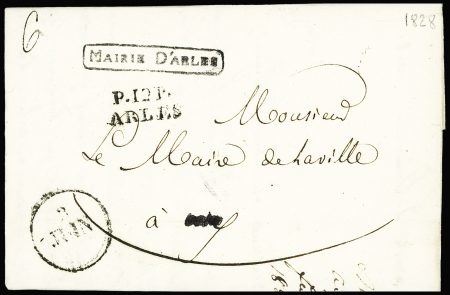 6
1828
MAIRIE D'ARLES
P.12.P.
ARLES
Monsieur
Le Maire de la ville
à
3
JUIN